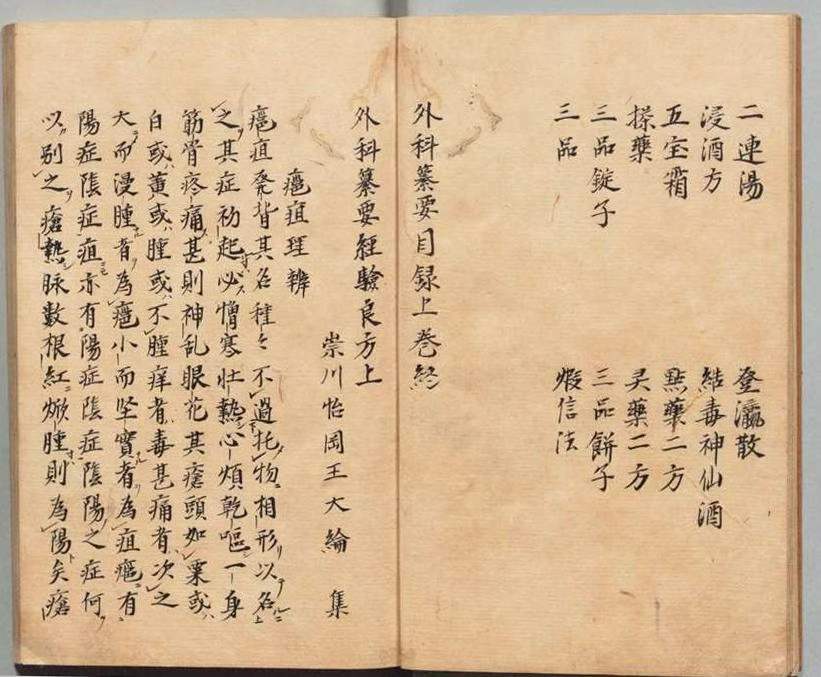 二連湯　登瀛散
浸酒方　結毒神仙酒
五宝霜　點藥二方
搽藥　灵藥二方
三品錠子　三品餅子
三品　煅信法
外科纂要目録上巻終
外科纂要經驗良方上
崇川怡岡王大綸　集
癰疽理辨
癰疽発背其名種〻不過托物相形以名
之其症初起必憎寒壮熱心煩乾嘔一身
筋骨疼痛甚則神乱眼花其瘡頭如粟或
白或黄或腫或不腫痒者毒甚痛者次之
大而浸腫者為癰小而坚實者為疽癰有
陽症陰症疽亦有陽症陰症陰陽之症何
以別之瘡熱脉数根紅焮腫則為陽矣瘡